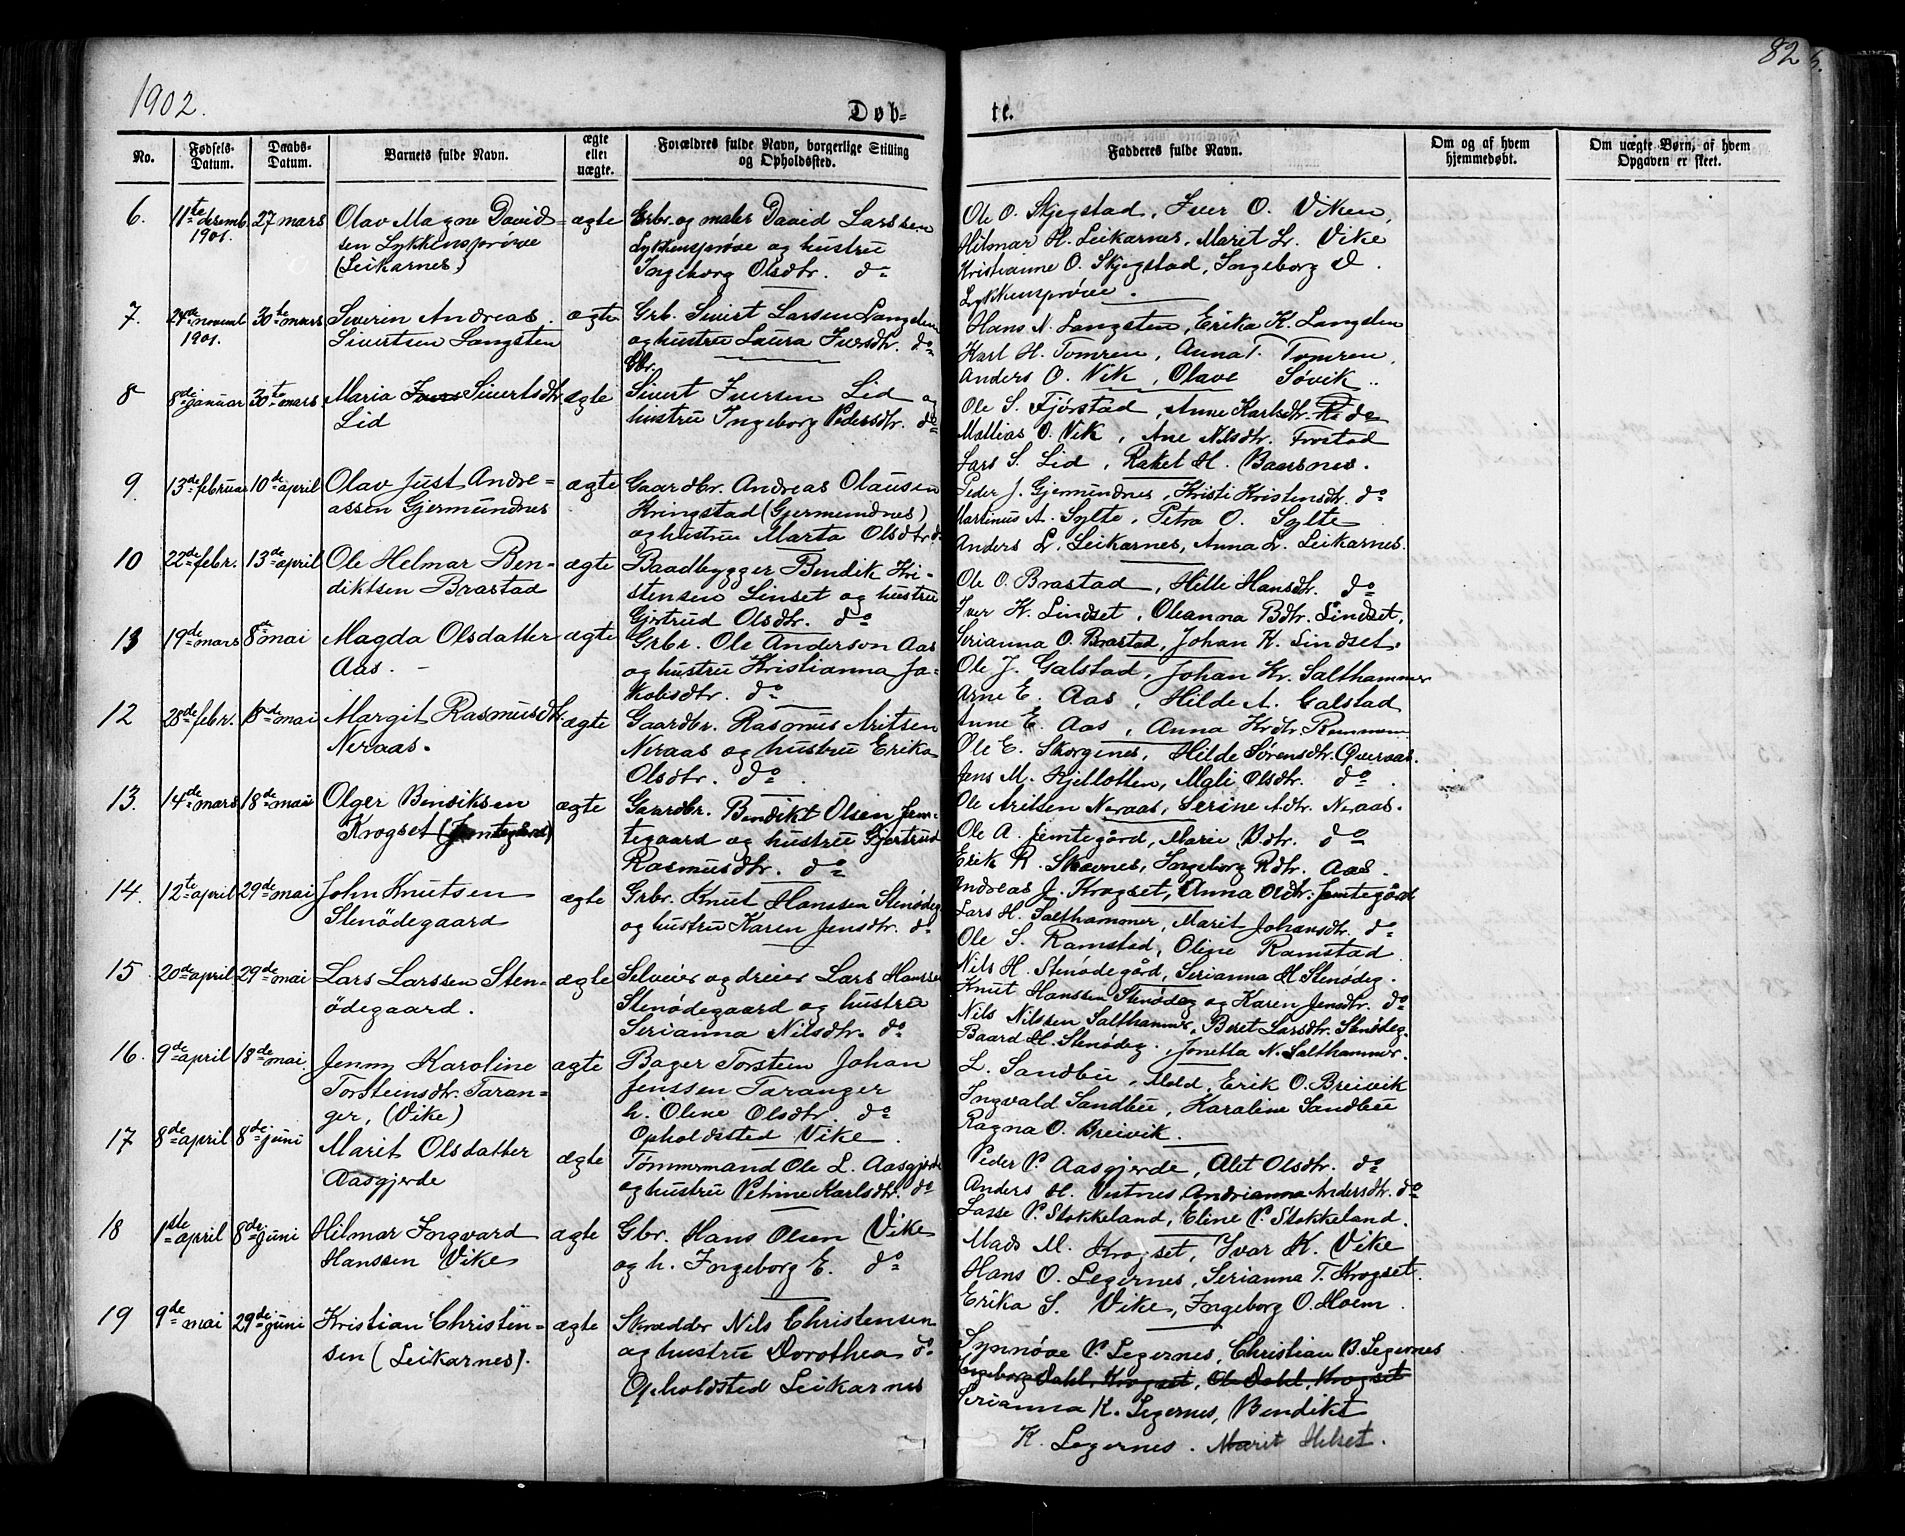 1902.
82 b.
Døb-
te.
No.
Fødsels-Datum.
Daabs-Datum.
Barnets fulde Navn.
ægte eller uægte.
Forældres fulde Navn, borgerlige Stilling og Opholdsted.
Fadderes fulde Navn.
Om og af hvem hjemmedøbt.
Om uægte Børn, af hvem Opgaven er skeet.
6. 11te decemb. 1901. 27 mars
Olav Magne David-
sen Lykkensprøve
(Leikarnes)
ægte
Grbr. og maler David Larssen
Lykkensprøve og hustru
Ingeborg Olsdtr. do
Ole O. Skjegstad, Iver O. Viken,
Hilmar H. Leikarnes, Marit L. Vike
Kristianne O. Skjegstad, Ingeborg D.
Lykkensprøve.
7. 24de novemb. 1901. 30te mars
Severin Andreas
Sivertsen Langsten
ægte
Grb. Sivert Larsen Langsten
og hustru Laura Iversdtr. do
Hans N. Langsten, Erika K. Langsten
Karl H. Tomren, Anna T. Tomren,
Anders O. Vik, Olave Søvik..
8 8de januar 30te mars
Maria Ivers Sivertsdtr.
Lid
ægte
Gbr.
Sivert Iversen Lid og
hustru Ingeborg Pedersdtr. do
Ole S. Fjørstad, Anne Karlsdtr. do
Mattias O. Vik, Ane Nilsdtr. Frostad
Lars S. Lid, Rakel H. Baarsnes.
9. 13de februar 10de april
Olav Just Andre-
assen Gjermundnes
ægte
Gaardbr. Andreas Olausen
Kringstad (Gjermundnes)
og hustru Marta Olsdtr. do
Peder J. Gjermundnes, Kristi Kristensdtr. do
Martinus A. Sylte, Petra O. Sylte
Anders L. Leikarnes, Anna L. Leikarnes.
10 22de febr. 13de april
Ole Helmar Ben-
diktsen Brastad
ægte
Baadbygger Bendik Kri-
stensen Linset og hustru
Gjertrud Olsdtr. do
Ole O. Brastad, Hille Hansdtr. do
Iver K. Lindset, Oleanna Bdtr. Lindset,
Serianna O. Brastad, Johan K. Lindset.
11 19de mars 8de mai
Magda Olsdatter
Aas. -
ægte
Grbr. Ole Anderson Aas
og hustru Kristianna Ja-
kobsdtr. do
Ole J. Galstad, Johan Kr. Salthammer
Arne E. Aas, Hilde A. Galstad
Anne E. Aas, Anna Kr.dtr.
12 28de febr. 18de mai
Margit Rasmusdtr.
Neraas.
ægte
Gaardbr. Rasmus Aritsen
Neraas og hustru Erika
Olsdtr. do
Ole E. Skorgenes, Hilde Sørensdtr. Øveraas.
Jens M. Kjellotten, Mali Olsdtr. do
Ole Aritsen Neraas, Serine Adtr. Neraas.
13. 14de mars 18de mai
Olger Bendiksen
Krogset (Jemtegård)
ægte
Gaardbr. Bendikt Olsen Jem-
tegaard og hustru Gjertrud
Rasmusdtr. do
Ole A. Jemtegård, Marie Bdtr. do
Erik R. Skavnes, Ingeborg Rdtr. Aas.
Andreas J. Krogset, Anna Oldtr. Jemtegård
14. 12te april 29de mai
John Knutsen
Stenødegaard
ægte
Grbr. Knut Hanssen Stenødeg.
og hustru Karen Jensdtr. do
Lars H. Salthammer, Marit Johansdtr. do
Ole S. Ramstad, Oline Ramstad
Nils H. Stenødegård, Serianna H. Stenødeg.
15. 20de april 29de mai
Lars Larssen Sten-
ødegaard.
ægte
Selveier og dreier Lars Hanssen
Stenødegaard og hustru
Serianna Nilsdtr. do
Knut Hanssen Stenødeg og Karen Jensdtr. do
Nils Nilssen Salthammer, Beret Larsdtr. Stenødeg.
Baard H. Stenødeg., Jonetta N. Salthammer.
16. 9de april 18de mai
Jenny Karoline
Torsteinsdtr. Taran-
ger, (Vike)
ægte
Bager Torstein Johan
Jenssen Taranger
h. Oline Olsdtr. do
Opholdssted Vike.
L. Sandbu, Mold, Erik O. Breivik
Ingvald Sandbu, Karaline Sandbu
Ragna O. Breivik.
17 8de april 8de juni
Marit Olsdatter
Aasgjerde
ægte
Tømmermand Ole L. Aasgjerde
og hustru Petrine Karlsdtr. do
Peder P. Aasgjerde, Alet Olsdtr. do
Anders H. Vestnes Andrianna Andersdtr. do
Lasse P. Stokkeland, Eline P. Stokkeland.
18 1ste april 8de juni
Hilmar Ingvard
Hanssen Vike
ægte
Gbr. Hans Olsen Vike
og h. Ingeborg E. do
Mads M. Krogset, Ivar K. Vike
Hans O. Legernes, Serianna T. Krogset.
Erika S. Vike, Ingeborg O. Hoem.
19 9de mai 29de juni
Kristian Christen-
sen (Leikarnes).
ægte
Skrædder Nils Christensen
og hustru Dorothea do
Opholdsted Leikarnes
Synnøve P. Legernes, Christian B. Legernes
Ingeborg Dahl, Krogset, O. Dahl, Krogset
Serianna K. Legernes, Bendikt
K. Legernes. Marit Helset.